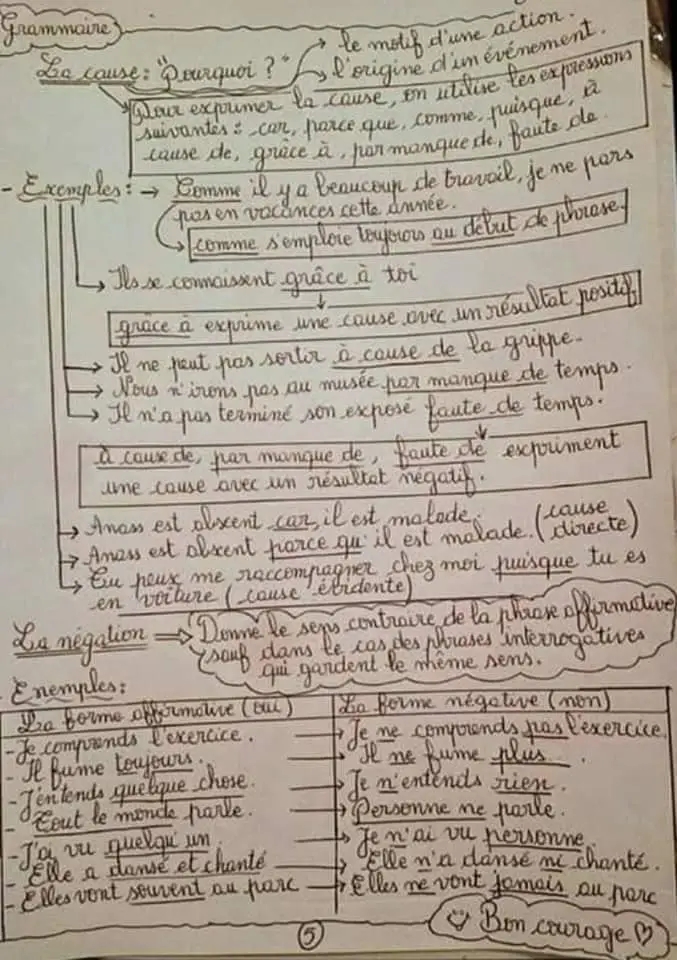 Grammaire
La cause: "Pourquoi ?" → le motif d'une action.
→ l'origine d'un événement.
Pour exprimer la cause, on utilise les expressions
suivantes: car, parce que, comme, puisque, à
cause de, grâce à, par manque de, faute de.
- Exemples: → Comme il y a beaucoup de travail, je ne pars
pas en vacances cette année.
comme s'emploie toujours au début de phrase.
→ Ils se connaissent grâce à toi
grâce à exprime une cause avec un résultat positif
→ Il ne peut pas sortir à cause de la grippe.
→ Nous n'irons pas au musée par manque de temps.
→ Il n'a pas terminé son exposé faute de temps.
à cause de, par manque de, faute de expriment
une cause avec un résultat négatif.
→ Anass est absent car, il est malade.
→ Anass est absent parce qu'il est malade. (cause directe)
→ Tu peux me raccompagner chez moi puisque tu es
en voiture (cause évidente)
La négation ⇒ Donne le sens contraire de la phrase affirmative
sauf dans le cas des phrases interrogatives
qui gardent le même sens.
- Exemples:
La forme affirmative (oui) La forme négative (non)
- Je comprends l'exercice. → Je ne comprends pas l'exercice.
- Il fume toujours. → Il ne fume plus.
- J'entends quelque chose. → Je n'entends rien.
- Tout le monde parle. → Personne ne parle.
- J'ai vu quelqu'un → Je n'ai vu personne
- Elle a dansé et chanté → Elle n'a dansé ni chanté.
- Elles vont souvent au parc → Elles ne vont jamais au parc
5
Bon courage ♡